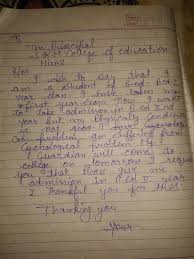 To
The Principal
S.K.M College of education
Sir
I wish to say that
am a student of B.ed
year. I have taken my
first year exam. Now I want
to take admission in B.ed II
year but my Physically Condition
is not good. I have
problem am suffering from
Cychological problem. My
Guardian will come to
college on tomorrow I request
you that please give me
admission in B.ed II year
I thankful you for this.
Thanking you
Your